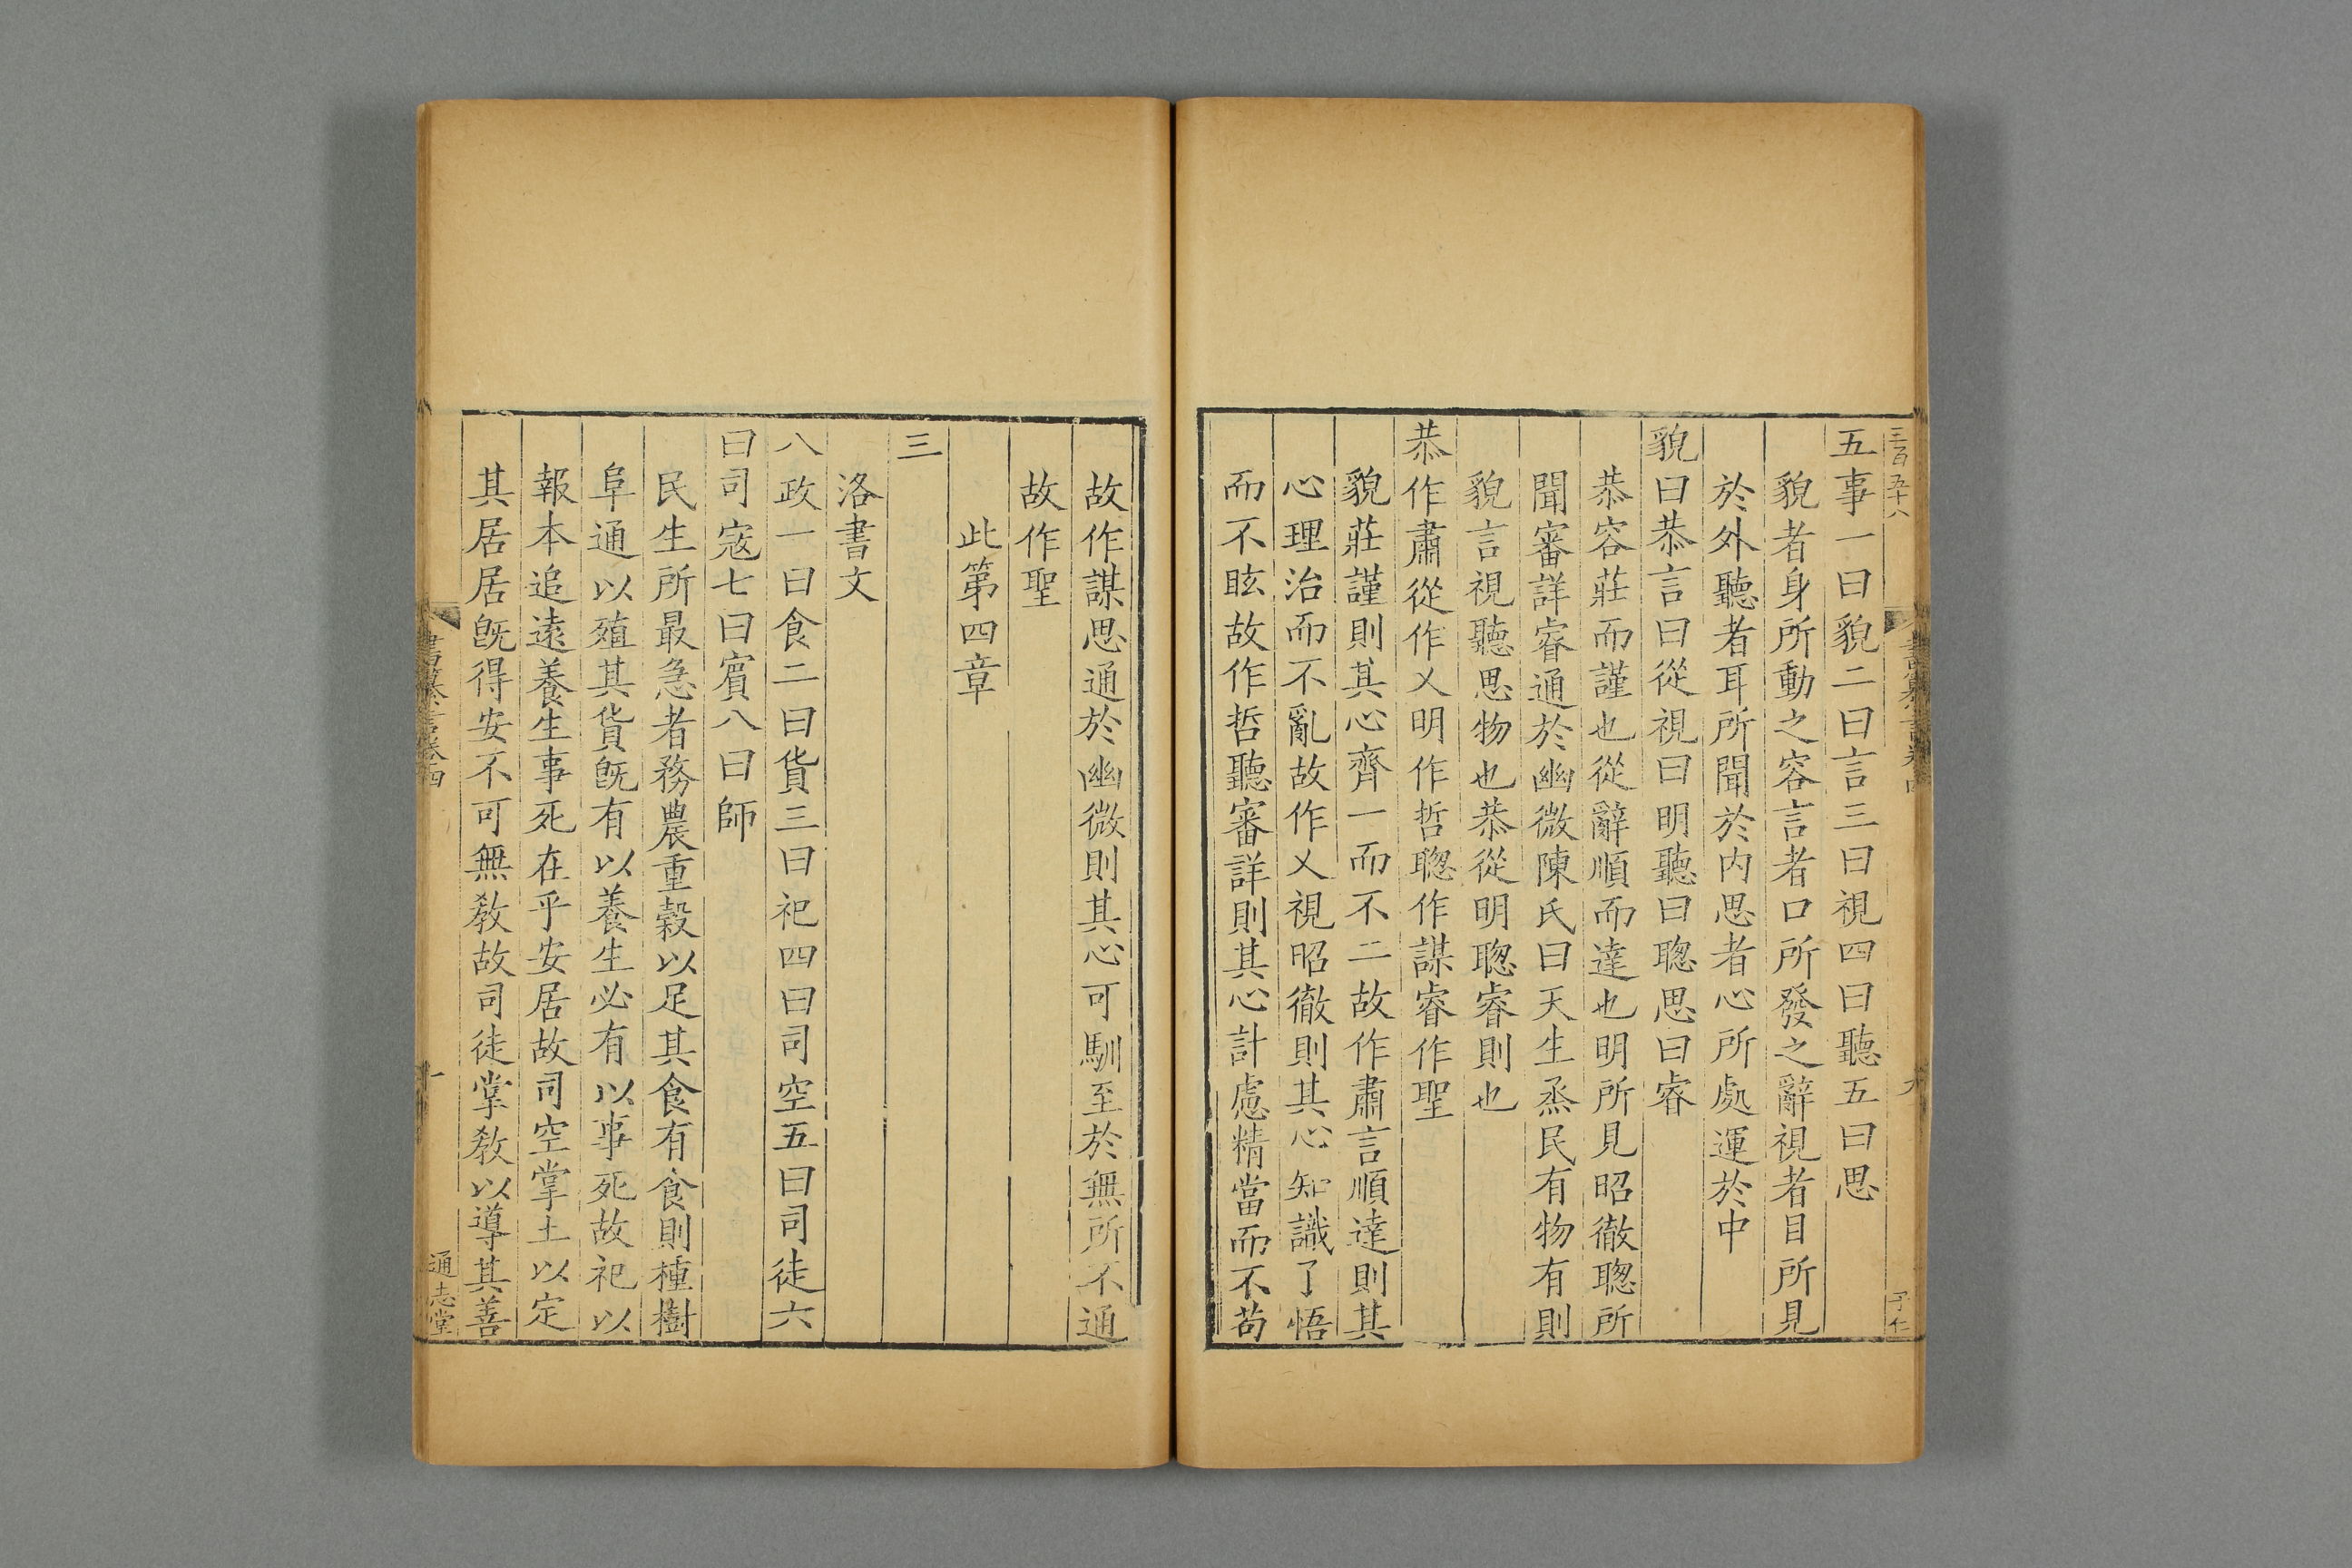 三百五十八
子仁
五事一曰貌二曰言三曰視四曰聽五曰思
貌者身所動之容言者口所發之辭視者目所見
於外聽者耳所聞於内思者心所處運於中
貌曰恭言曰從視曰明聽曰聦思曰睿
恭容莊而謹也從辭順而達也明所見昭徹聦所
聞審詳睿通於幽微陳氏曰天生烝民有物有則
貌言視聽思物也恭從明聦睿則也
恭作肅從作乂明作哲聦作謀睿作聖
貌莊謹則其心齊一而不二故作肅言順達則其
心理治而不亂故作乂視昭徹則其心知識了悟
而不眩故作哲聽審詳則其心計慮精當而不苟
故作謀思通於幽微則其心可馴至於無所不通
故作聖
此第四章
三
洛書文
八政一曰食二曰貨三曰祀四曰司空五曰司徒六
曰司寇七曰賓八曰師
民生所最急者務農重穀以足其食有食則種樹
阜通以殖其貨旣有以養生必有以事死故祀以
報本追遠養生事死在乎安居故司空掌土以定
其居居旣得安不可無敎故司徒掌敎以導其善
書纂言卷四
十
通志堂